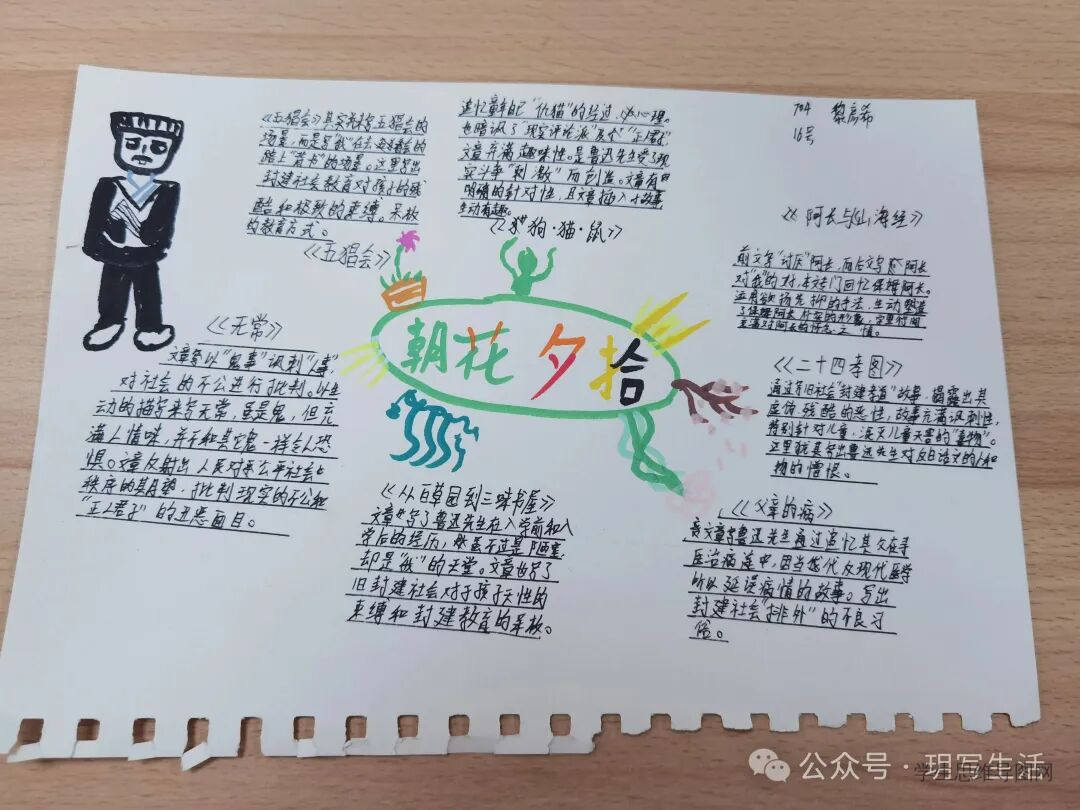 《五猖会》其实描写五猖会的
场景,而是写"我"在去
踏上"背书"的场景。这里写出
封建社会教育对孩子的残
酷和极致的束缚。呆板
的教育方式。
《五猖会》
追忆童年自己"仇猫"的经过,心理。
也暗讽了现实评论派及个"正人君子"
文章充满趣味性。是鲁迅先生受了现
实斗争"刺激"而创造。文章有
明确的针对性,且文章插入故事
生动有趣。
《狗·猫·鼠》
704 黎高希
16号
《阿长与山海经》
前文写"讨厌"阿长,而后文写阿长
对"我"的好,本文专门回忆保姆阿长。
运用欲扬先抑的手法,生动塑造
了保姆阿长的形象,字里行间
充满对阿长的怀念之情。
《无常》
文章以"鬼事"讽刺"人事",
对社会的不公进行批判。以生
动的描写来写无常,虽是鬼,但充
满人情味,并不和其它鬼一样令人恐
惧。文章反射出人民对公平社会与
秩序的期望,批判现实的不公和
"正人君子"的丑恶面目。
朝花夕拾
《二十四孝图》
通过写旧社会"封建孝道"故事,揭露出其
虚伪残酷的恶性,故事充满讽刺性,
特别针对儿童,泯灭儿童天善的"毒物"。
这里就是写出鲁迅先生对反白话文的人和
物的憎恨。
《从百草园到三味书屋》
文章写了鲁迅先生在入学前和入
学后的经历,虽不过是陋室,
却是"我"的天堂。文章也写了
旧封建社会对于孩子天性的
束缚和封建教育的呆板。
《父亲的病》
文章写鲁迅先生通过追忆其父在寻
医治病途中,因当代反现代医学
所以延误病情的故事。写出
封建社会"排外"的不良习
俗。
公众号·玥写生活
学生思维导图网